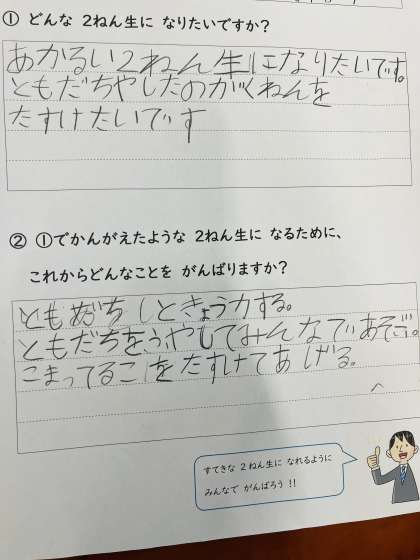 ① どんな 2ねん生に なりたいですか?
あかるい2ねん生になりたいです。
ともだちやしたのがくねんを
たすけたいです
② ①でかんがえたような 2ねん生に なるために、
これからどんなことを がんばりますか?
ともだちしときょう力する。
ともだちをふやしてみんなであそぶ。
こまってるこをたすけてあげる。
すてきな 2ねん生に なれるように
みんなで がんばろう!!